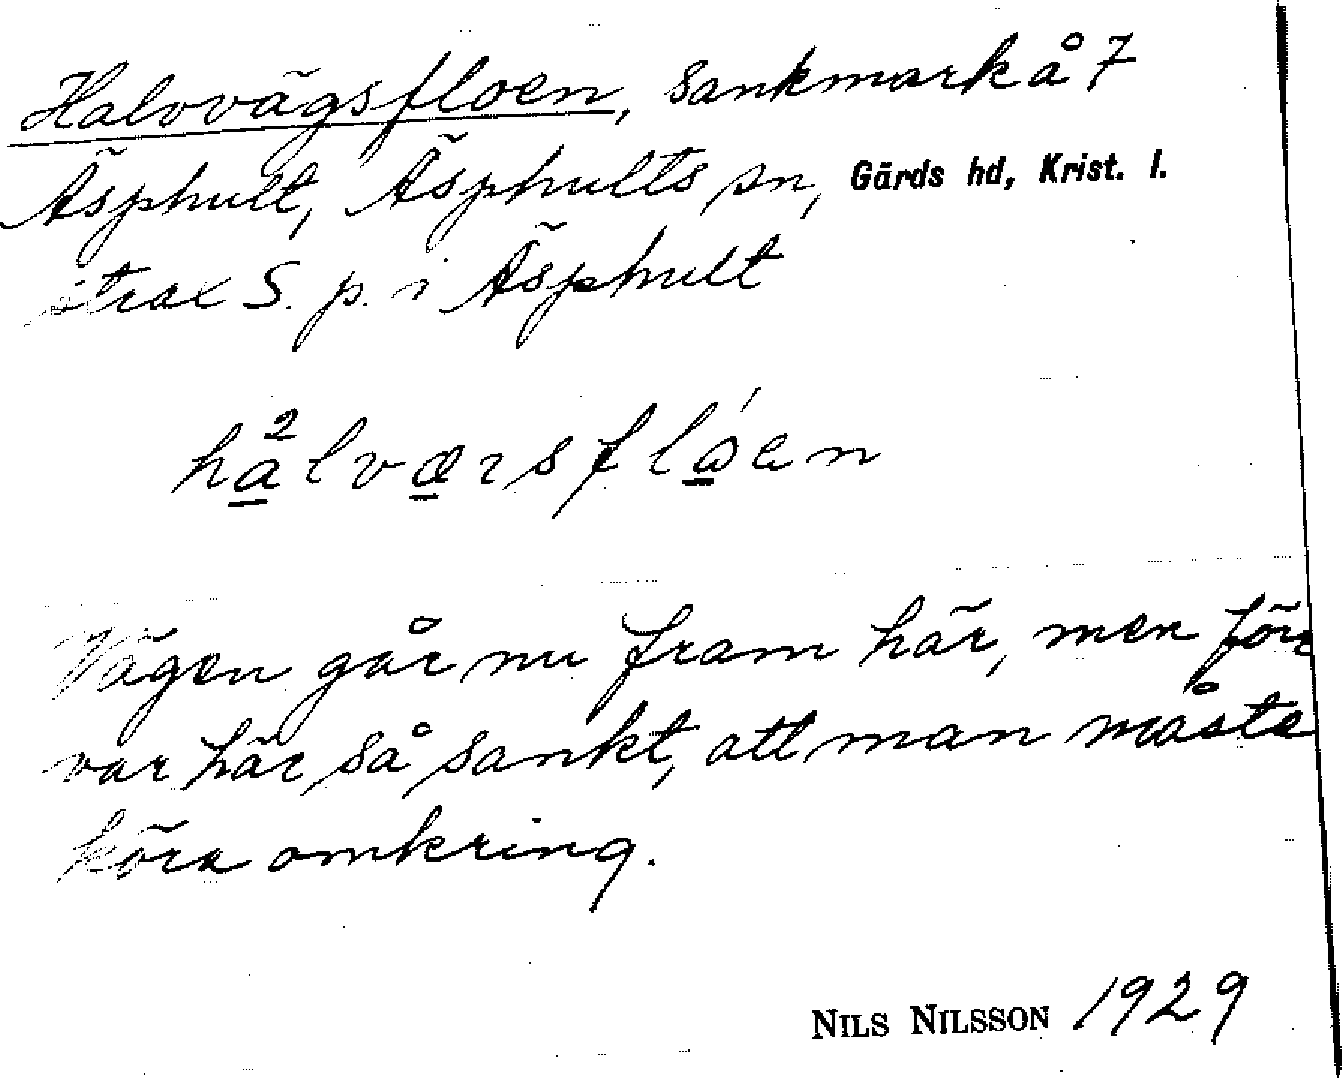 Halvvägsfloen, Sankmark å 7
Äsphult, Äsphults sn, Gärds hd, Krist. l.
strax S. p. i Äsphult
ha²lvaɿsflóen
Vägen går nu fram här, men förr
var här så sankt, att man måste
köra omkring.
NILS NILSSON 1929